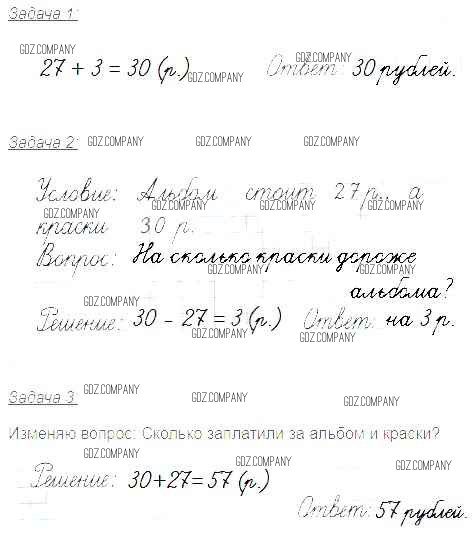 Задача 1:
GDZ.COMPANY GDZ.COMPANY
27 + 3 = 30 (р.) Ответ: 30 рублей.
GDZ.COMPANY
Задача 2: GDZ.COMPANY GDZ.COMPANY GDZ.COMPANY
Условие: Альбом стоит 27 р., а
GDZ.COMPANY GDZ.COMPANY GDZ.COMPANY GDZ.COMPANY
краски 30 р.
Вопрос: На сколько краски дороже
GDZ.COMPANY GDZ.COMPANY
альбома?
GDZ.COMPANY
Решение: 30 - 27 = 3 (р.) Ответ: на 3 р.
GDZ.COMPANY GDZ.COMPANY
Задача 3: GDZ.COMPANY GDZ.COMPANY GDZ.COMPANY
Изменяю вопрос: Сколько заплатили за альбом и краски?
GDZ.COMPANY GDZ.COMPANY GDZ.COMPANY
Решение: 30+27=57 (р.)
GDZ.COMPANY
Ответ: 57 рублей.